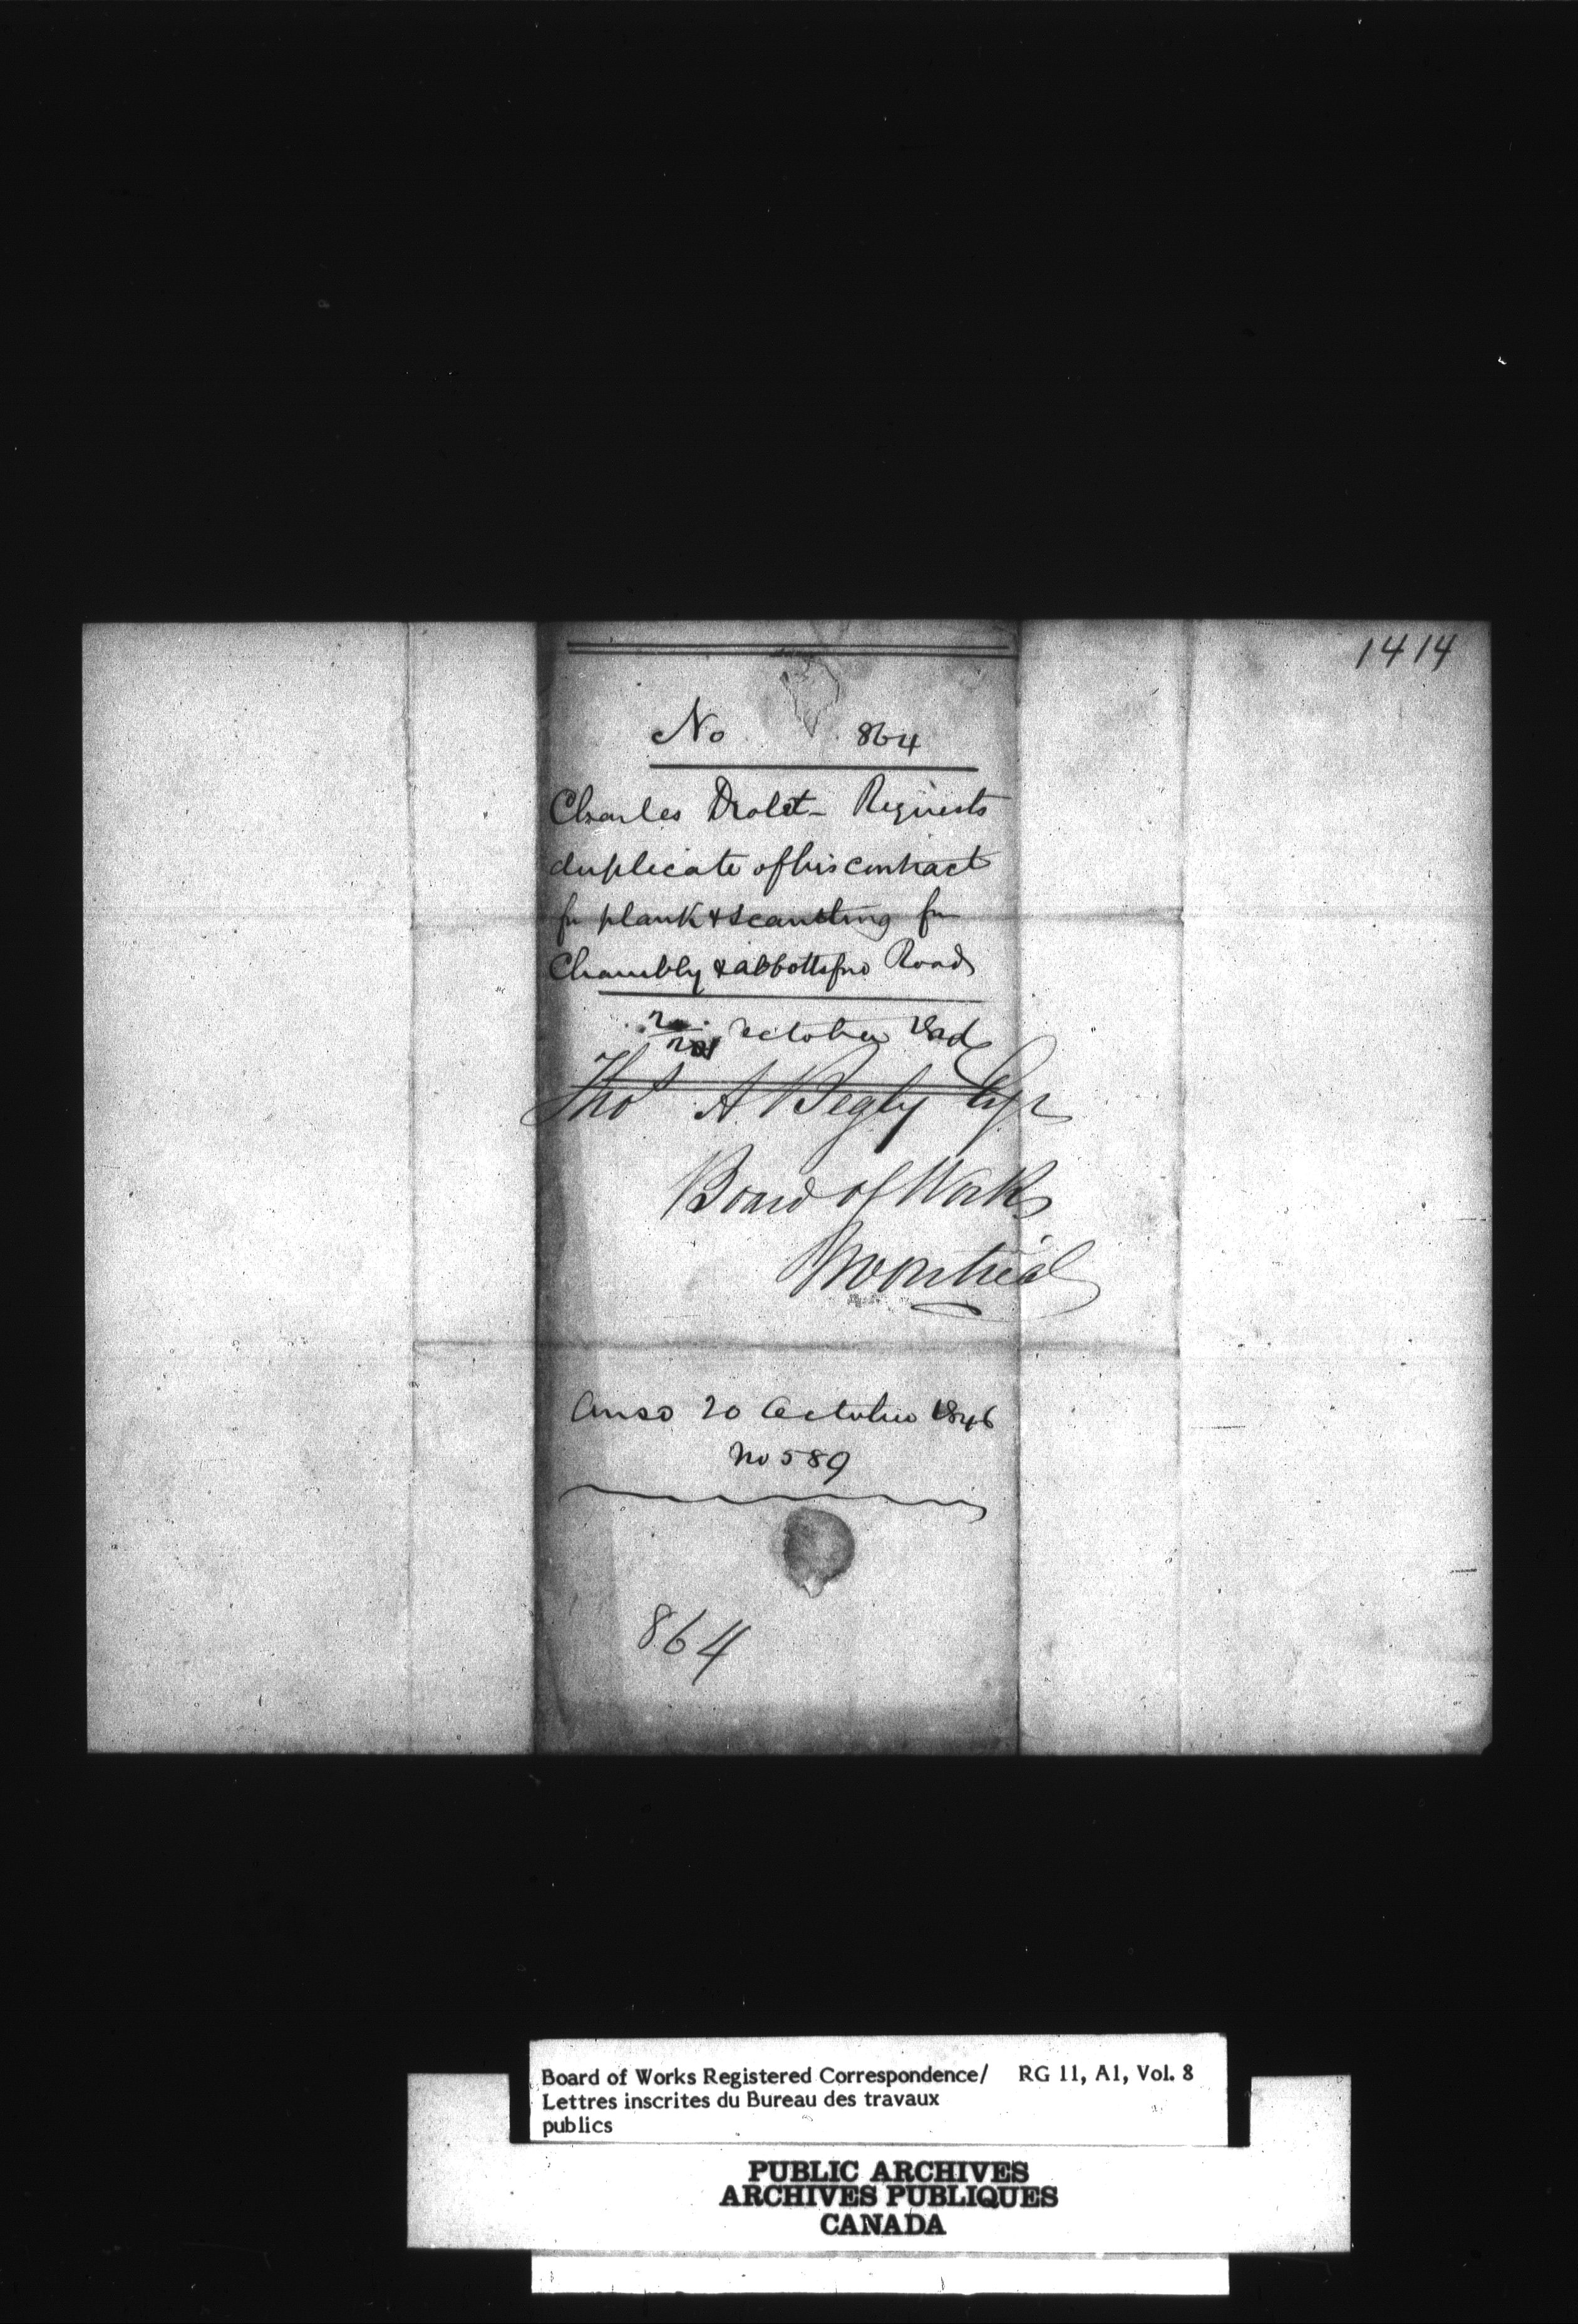 1414
No 864
Charles Drolet - Requests
duplicate of his contract
for plank & scantling for
Chambly & Abbottsford Road
October
Thos A Begly Esqr
Board of Works
Montreal
Ansd 20 October 1846
No 589
864
Board of Works Registered Correspondence/ RG 11, A1, Vol. 8
Lettres inscrites du Bureau des travaux
publics
PUBLIC ARCHIVES
ARCHIVES PUBLIQUES
CANADA